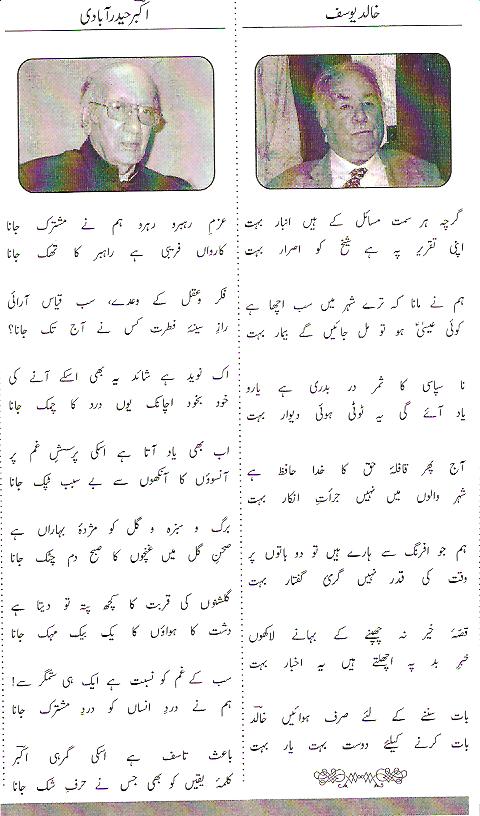 خالد یوسف
گرچہ ہر سمت مسائل کے ہیں انبار بہت
اپنی تقریر پہ ہے شیخ کو اصرار بہت
ہم نے مانا کہ ترے شہر میں سب اچھا ہے
کوئی عیسیٰؑ ہو تو مل جائیں گے بیمار بہت
نا سپاسی کا ثمر در بدری ہے یارو
یاد آئے گی یہ ٹوٹی ہوئی دیوار بہت
آج پھر قافلۂ حق کا خدا حافظ ہے
شہر والوں میں نہیں جرأتِ انکار بہت
ہم جو افرنگ سے ہارے ہیں تو دو باتوں پر
وقت کی قدر نہیں گرمیٔ گفتار بہت
قصۂ خیر نہ چھپنے کے بہانے لاکھوں
خبرِ بد پہ اچھلتے ہیں یہ اخبار بہت
بات سننے کے لئے صرف ہوائیں خالدؔ
بات کرنے کیلئے دوست بہت یار بہت
اکبر حیدرآبادی
عزمِ رہبرو رہرو ہم نے مشترک جانا
کارواں فریبی ہے راہبر کا تھک جانا
فکر وعقل کے وعدے، سب قیاس آرائی
رازِ سینۂ فطرت کس نے آج تک جانا؟
اک نوید ہے شائد یہ بھی اسکے آنے کی
خود بخود اچانک یوں درد کا چمک جانا
اب بھی یاد آتا ہے اسکی پرسشِ غم پر
آنسوؤں کا آنکھوں سے بے سبب ٹپک جانا
برگ و سبزہ و گل کو مژدۂ بہاراں ہے
صحنِ گل میں غنچوں کا صبح دم چٹک جانا
گلشنوں کی قربت کا کچھ پتہ تو دیتا ہے
دشت کا ہواؤں کا یک بیک مہک جانا
سب کے غم کو نسبت ہے ایک ہی ستمگر سے!
ہم نے دردِ انساں کو دردِ مشترک جانا
باعثِ تاسف ہے اسکی گمرہی اکبرؔ
کلمۂ یقیں کو بھی جس نے حرفِ شک جانا